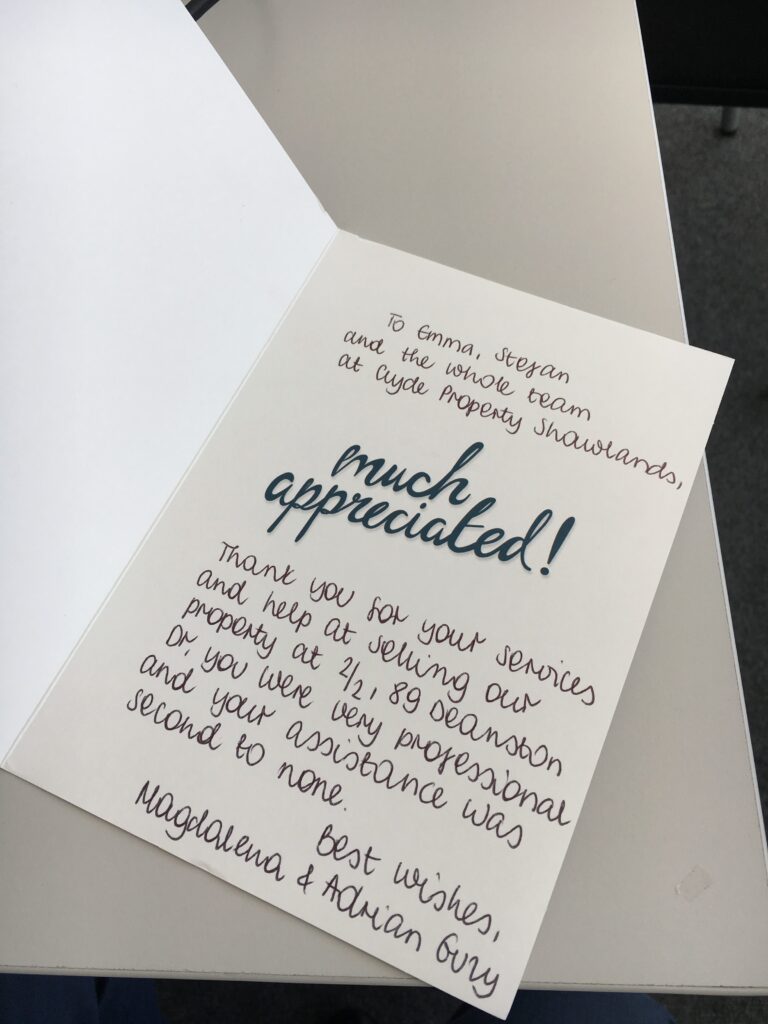 To Emma, Stefan
and the whole team
at Clyde Property Shawlands,
much
appreciated!
Thank you for your services
and help at selling our
property at 2/2, 89 Deanston
Dr, you were very professional
and your assistance was
second to none.
Best wishes,
Magdalena & Adrian Guzy